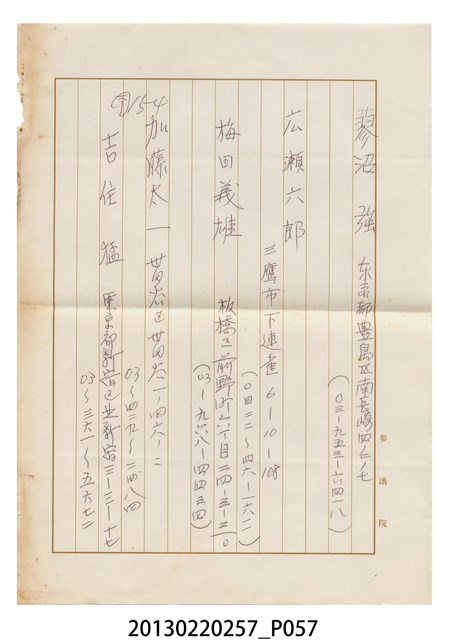 蓼沼 強 东京都豊島区南長崎四ノ七
(〇三－九五三－六四一八)
広瀬六郎 三鷹市下連雀6－10－108
(〇四二二～四六－一六二一)
梅田義雄 板橋区前野町六丁目二四－三－二一〇
(〇3－九六六八－四四三四)
加藤太一 世田谷区世田谷一－四六－二
〇3～四二九～二四八四
〒154
吉住 猛 東京都新宿区北新宿三－三－十七
03～三六一～五六七二
参議院
20130220257_P057